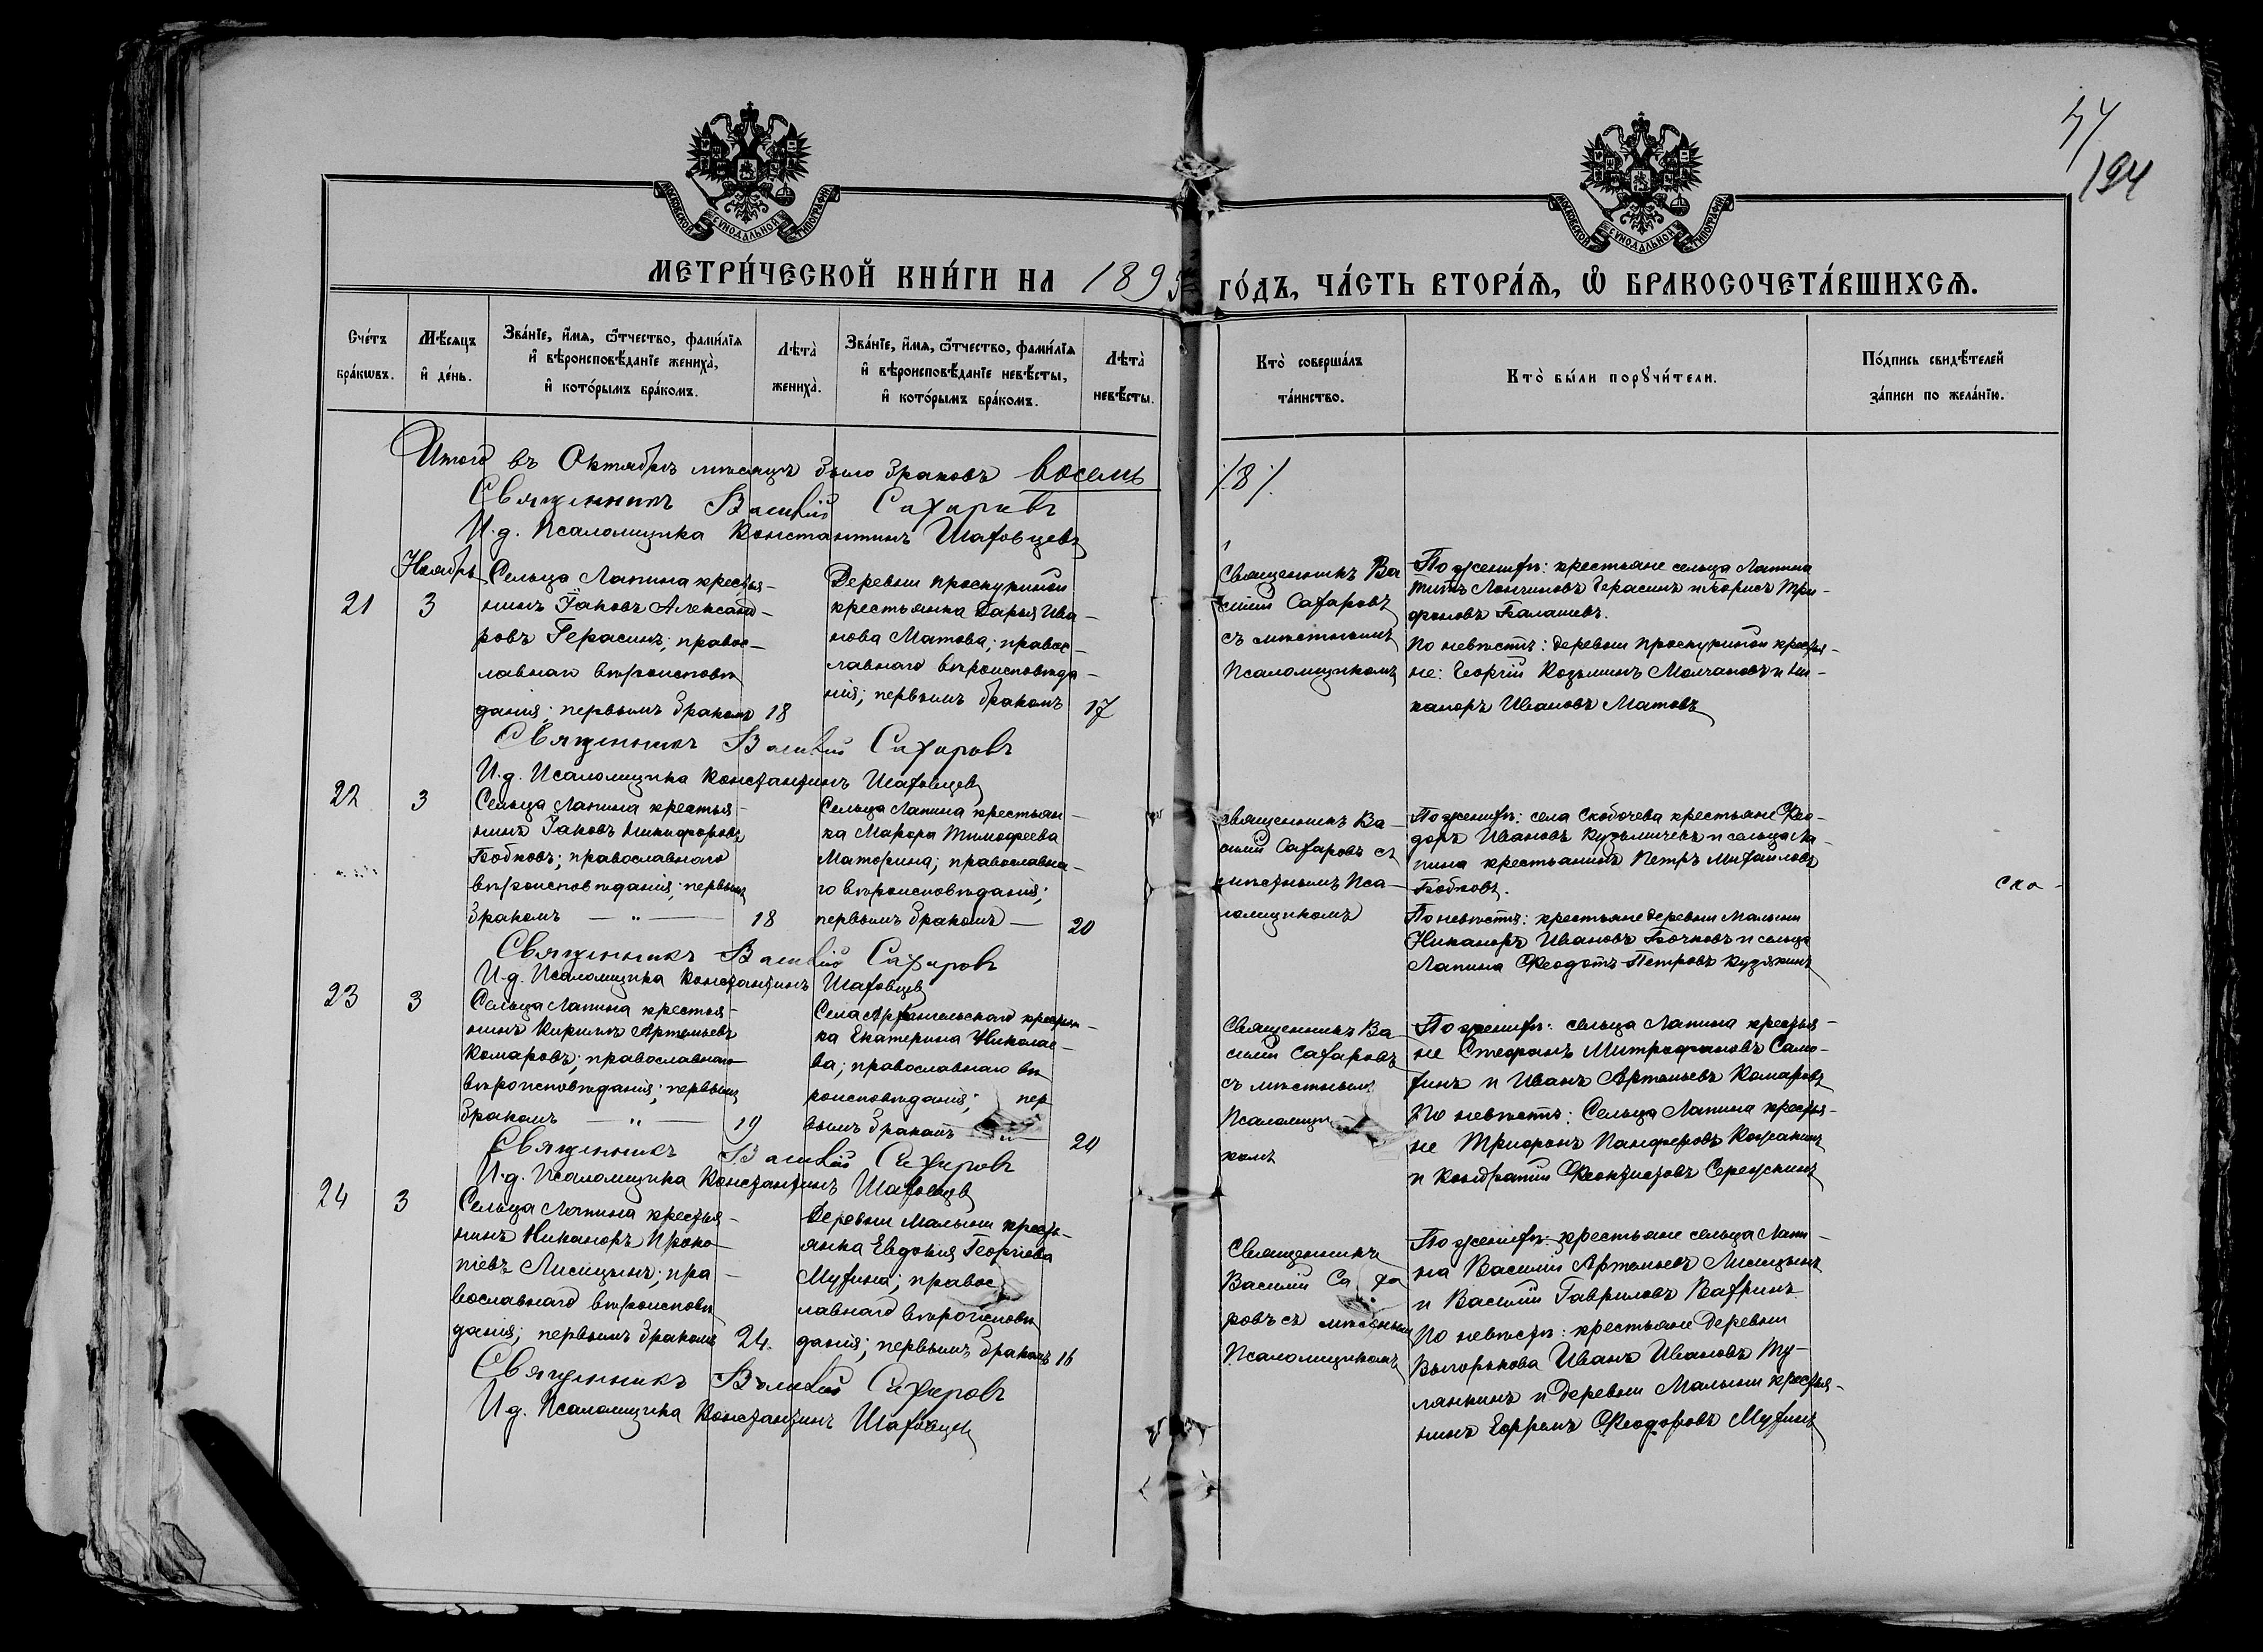 194
МОСКОВСКОЙ СѴНОДАЛЬНОЙ ТИПОГРАФІИ
МОСКОВСКОЙ СѴНОДАЛЬНОЙ ТИПОГРАФІИ
МЕТРИ́ЧЕСКОЙ КНИ́ГИ НА 1895 ГО́ДЪ, ЧА́СТЬ ВТОРА́Ѧ, Ѡ҆ БРАКОСОЧЕТА́ВШИХСѦ.
Сче́тъ бра́кѡвъ.
Мѣ́сѧцъ и҆ де́нь.
Зва́нїе, и҆́мѧ, ѻ҆́тчество, фами́лїѧ
и҆ вѣроисповѣ́данїе жениха̀,
и҆ кото́рымъ бра́комъ.
Лѣта̀ жениха̀.
Зва́нїе, и҆́мѧ, ѻ҆́тчество, фами́лїѧ
и҆ вѣроисповѣ́данїе невѣ́сты,
и҆ кото́рымъ бра́комъ.
Лѣта̀ невѣ́сты.
Кто̀ соверша́лъ та́инство.
Кто̀ бы́ли порꙋчи́тели.
По́дпись свидѣ́телей за́писи по жела́нїю.
Итого въ Октябрѣ мѣсяцѣ было браковъ восемь
/8/.
Священникъ Василій Сахаровъ
И.д. Псаломщика Константинъ Шаховцевъ
Ноябрь
21
3
Сельца Лапина крестья-
нинъ Іаковъ Александ-
ровъ Герасинъ; правос-
лавнаго вѣроисповѣ
данія; первымъ бракомъ
18
Деревни Проскуриной
крестьянка Дарья Ива-
нова Матова; правос-
лавнаго вѣроисповѣда-
нія; первымъ бракомъ
17
Священникъ Ва
силій Сахаровъ
съ мѣстнымъ
Псаломщикомъ
По женихѣ: крестьяне сельца Лапина
Титъ Лонгиновъ Герасинъ и Борисъ Три-
фоновъ Балашевъ.
По невѣстѣ: деревни Проскуриной крестья-
не: Георгій Козьминъ Молчановъ и Ни-
каноръ Ивановъ Матовъ
Священникъ Василій Сахаровъ
И.д. Псаломщика Константинъ Шаховцевъ
22
3
Сельца Лапина крестья-
нинъ Іаковъ Никифоровъ
Бобковъ; православнаго
вѣроисповѣданія; первымъ
бракомъ — „ —
18
Сельца Лапина крестьян-
ка Мавра Тимофеева
Матюхина; православна-
го вѣроисповѣданія;
первымъ бракомъ —
20
Священникъ Ва-
силій Сахаровъ съ
мѣстнымъ Пса-
ломщикомъ
По женихѣ: села Скобочева крестьяне Ѳео-
доръ Ивановъ Кузьмичевъ и сельца Ла-
пина крестьянинъ Петръ Михаиловъ
Бобковъ.
По невѣстѣ: крестьяне деревни Малыни
Никаноръ Ивановъ Бочковъ и сельца
Лапина Ѳеодотъ Петровъ Кузякинъ
Священникъ Василій Сахаровъ
И.д. Псаломщика Константинъ Шаховцевъ
23
3
Сельца Лапина крестья-
нинъ Кириллъ Артемьевъ
Комаровъ; православнаго
вѣроисповѣданія; первымъ
бракомъ — „ —
19
Села Архангельскаго крестьян-
ка Екатерина Николае-
ва; православнаго вѣ
роисповѣданія; пер
вымъ бракомъ — „ —
20
Священникъ Ва
силій Сахаровъ
съ мѣстнымъ
Псаломщи
комъ
По женихѣ: сельца Лапина крестья-
не Стефанъ Митрофановъ Само-
хинъ и Иванъ Артемьевъ Комаровъ
По невѣстѣ: Сельца Лапина крестья-
не Трифонъ Панферовъ Кожакинъ
и Кондратій Ѳеоктистовъ Серегинъ
Священникъ Василій Сахаровъ
И.д. Псаломщика Константинъ Шаховцевъ
24
3
Сельца Лапина крестья-
нинъ Никаноръ Проко-
піевъ Лисицынъ; пра-
вославнаго вѣроисповѣ
данія; первымъ бракомъ
24.
Деревни Малыни кресть-
янка Евдокія Георгіева
Мухина; правос
лавнаго вѣроисповѣ
данія; первымъ бракомъ
16
Священникъ
Василій Саха
ровъ съ мѣстнымъ
Псаломщикомъ
По женихѣ: крестьяне сельца Лапи-
на Василій Артемьевъ Лисицынъ
и Василій Гавриловъ Вахринъ
По невѣстѣ: крестьяне деревни
Выгорькова Иванъ Ивановъ Ту-
лянкинъ и деревни Малыни крестья-
нинъ Ефремъ Ѳеодоровъ Мухинъ
Священникъ Василій Сахаровъ
И.д. Псаломщика Константинъ Шаховцевъ